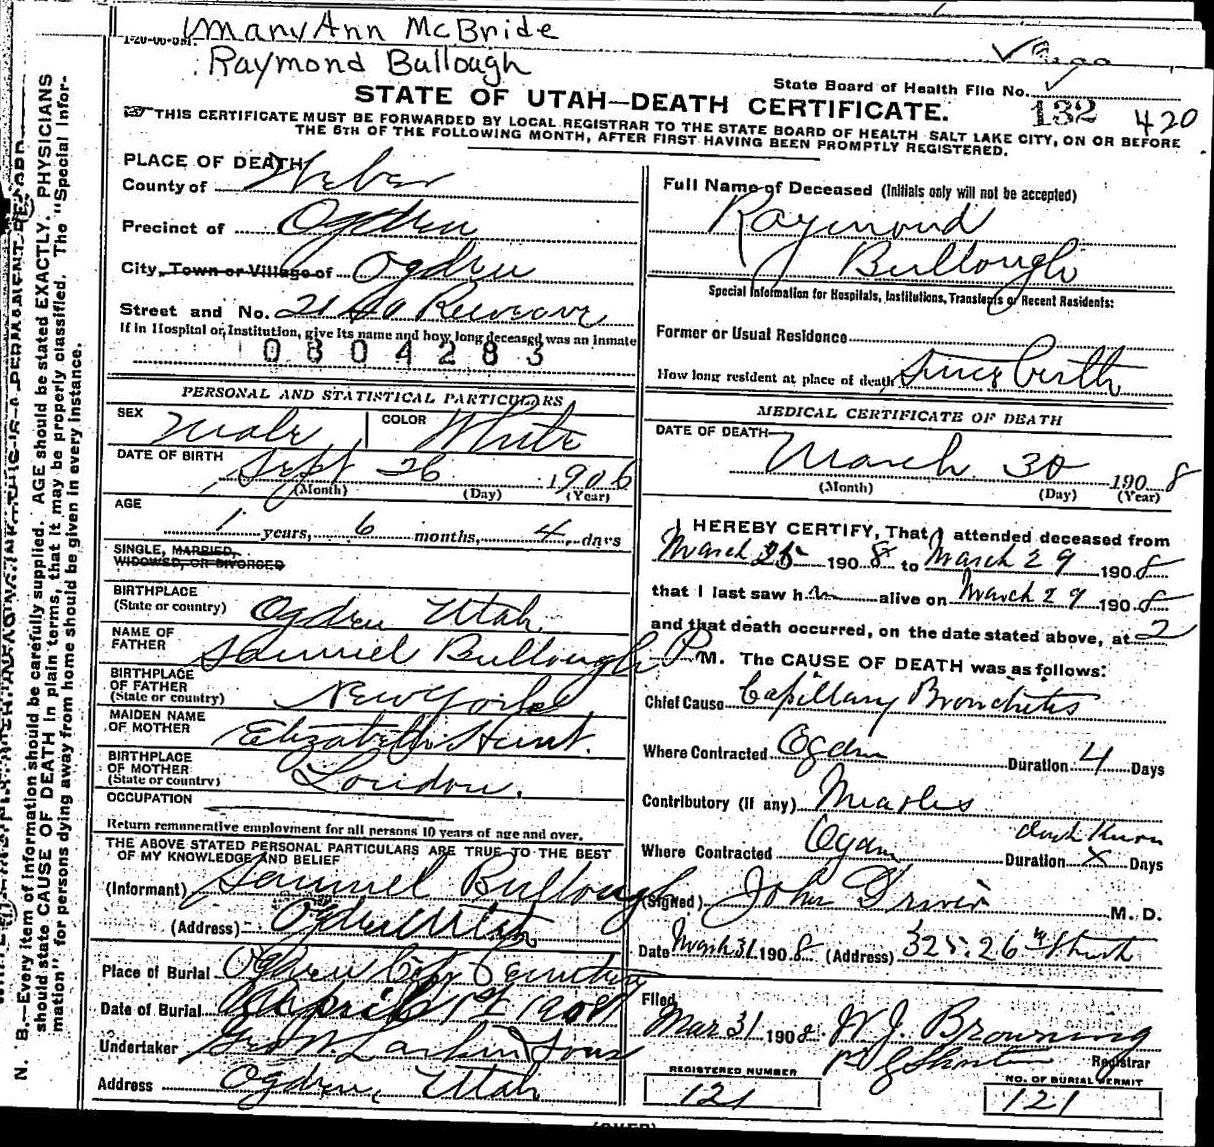 Mary Ann McBride
Raymond Bullough
State Board of Health File No.
132 420
STATE OF UTAH—DEATH CERTIFICATE.
THIS CERTIFICATE MUST BE FORWARDED BY LOCAL REGISTRAR TO THE STATE BOARD OF HEALTH SALT LAKE CITY, ON OR BEFORE
THE 5TH OF THE FOLLOWING MONTH, AFTER FIRST HAVING BEEN PROMPTLY REGISTERED.
PLACE OF DEATH
County of Weber
Precinct of Ogden
City, Town or Village of Ogden
Street and No.
If in Hospital or Institution, give its name and how long deceased was an inmate
0804283
PERSONAL AND STATISTICAL PARTICULARS
SEX Male COLOR White
DATE OF BIRTH Sept 26 1906
(Month) (Day) (Year)
AGE
1 years, 6 months, 4 days
SINGLE, MARRIED,
WIDOWED, OR DIVORCED
BIRTHPLACE
(State or country) Ogden Utah.
NAME OF
FATHER Samuel Bullough
BIRTHPLACE
OF FATHER
(State or country) New York
MAIDEN NAME
OF MOTHER Elizabeth Hunt.
BIRTHPLACE
OF MOTHER
(State or country) London.
OCCUPATION
Return remunerative employment for all persons 10 years of age and over.
THE ABOVE STATED PERSONAL PARTICULARS ARE TRUE TO THE BEST
OF MY KNOWLEDGE AND BELIEF
(Informant) Samuel Bullough
(Address) Ogden Utah
Place of Burial Ogden City Cemetery
Date of Burial April 1st 1908
Undertaker Geo W. Larkin & Sons
Address Ogden, Utah
Full Name of Deceased (Initials only will not be accepted)
Raymond
Bullough
Special Information for Hospitals, Institutions, Transients or Recent Residents:
Former or Usual Residence
How long resident at place of death Since birth
MEDICAL CERTIFICATE OF DEATH
DATE OF DEATH
March 30 1908
(Month) (Day) (Year)
I HEREBY CERTIFY, That I attended deceased from
March 25 1908 to March 29 1908
that I last saw him alive on March 29 1908
and that death occurred, on the date stated above, at 2
P M. The CAUSE OF DEATH was as follows:
Chief Cause Capillary Bronchitis
Where Contracted Ogden Duration 4 Days
Contributory (if any) Measles
dont know
Where Contracted Ogden Duration X Days
(Signed) John Driver M. D.
Date March 31 1908 (Address) 325. 26th Street
Filed
Mar 31 1908 W J Browning
Registrar
REGISTERED NUMBER
121
NO. OF BURIAL PERMIT
121
(OVER)
N. B.—Every item of information should be carefully supplied. AGE should be stated EXACTLY. PHYSICIANS
should state CAUSE OF DEATH in plain terms, that it may be properly classified. The "Special Infor-
mation" for persons dying away from home should be given in every instance.